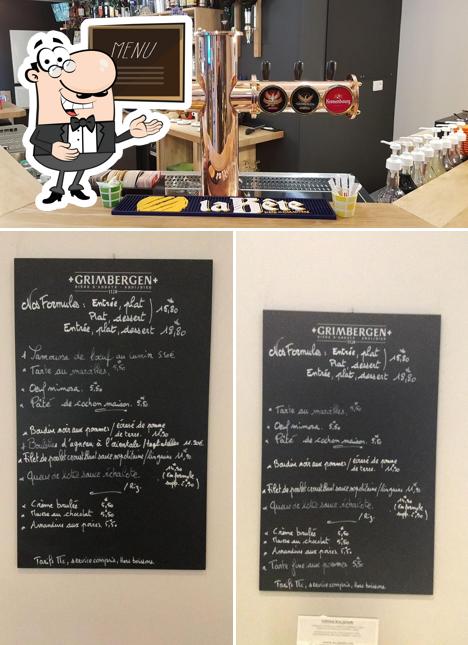 MENU
Kronenbourg
la Bête
GRIMBERGEN
BIÈRE D'ABBAYE ABDIJBIER
1128
Nos Formules : Entrée, plat
Plat, dessert 15,80
Entrée, plat, dessert 18,80
de bœuf au cumin 5.50€
Tarte au maroilles, 5,50
Oeuf mimosa. 5,50
Pâté de cochon maison. 5,50
Boudin noir aux pommes / écrasé de pomme
de terre. 11,90
d'agneau à l'orientale / tagliatelles 11.90€
Filet de poulet croustillant sauce napolitaine / linguine
Queue de lotte sauce
/ Riz. (En formule
suppl.
Crème brulée
Mousse au chocolat 5,50
Amandine aux poires 5,50
Tarifs TTC, service compris, Hors boisson.
GRIMBERGEN
BIÈRE D'ABBAYE ABDIJBIER
1128
Nos Formules : Entrée, plat
Plat, dessert 15,80
Entrée, plat, dessert 18,80
Tarte au maroilles, 5,50
Oeuf mimosa. 5,50
Pâté de cochon maison. 5,50
Boudin noir aux pommes / écrasé de pomme
de terre. 11,90
Filet de poulet croustillant sauce napolitaine / linguine
Queue de lotte sauce
/ Riz. (En formule
suppl.
Crème brulée
Mousse au chocolat 5,50
Amandine aux poires 5,50
Tarte fine aux pommes 5,50
Tarifs TTC, service compris, Hors boisson.